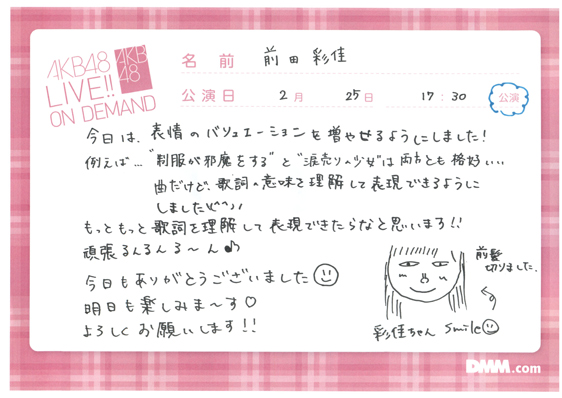 AKB48
LIVE!!
ON DEMAND
AKB
48
名 前 前田 彩佳
公演日 2月 25日 17:30 公演
今日は、表情のバリュエーションを増やせるようにしました!
例えば…"制服が邪魔をする"と"涙売りの少女"は両方とも格好いい
曲だけど、歌詞の意味を理解して表現できるように
しました(^^)
もっともっと歌詞を理解して表現できたらなと思います!!
頑張るんるんる〜ん♪
今日もありがとうございました
明日も楽しみま〜す♡
よろしくお願いします!!
前髪
切りました。
彩佳ちゃん smile
DMM.com